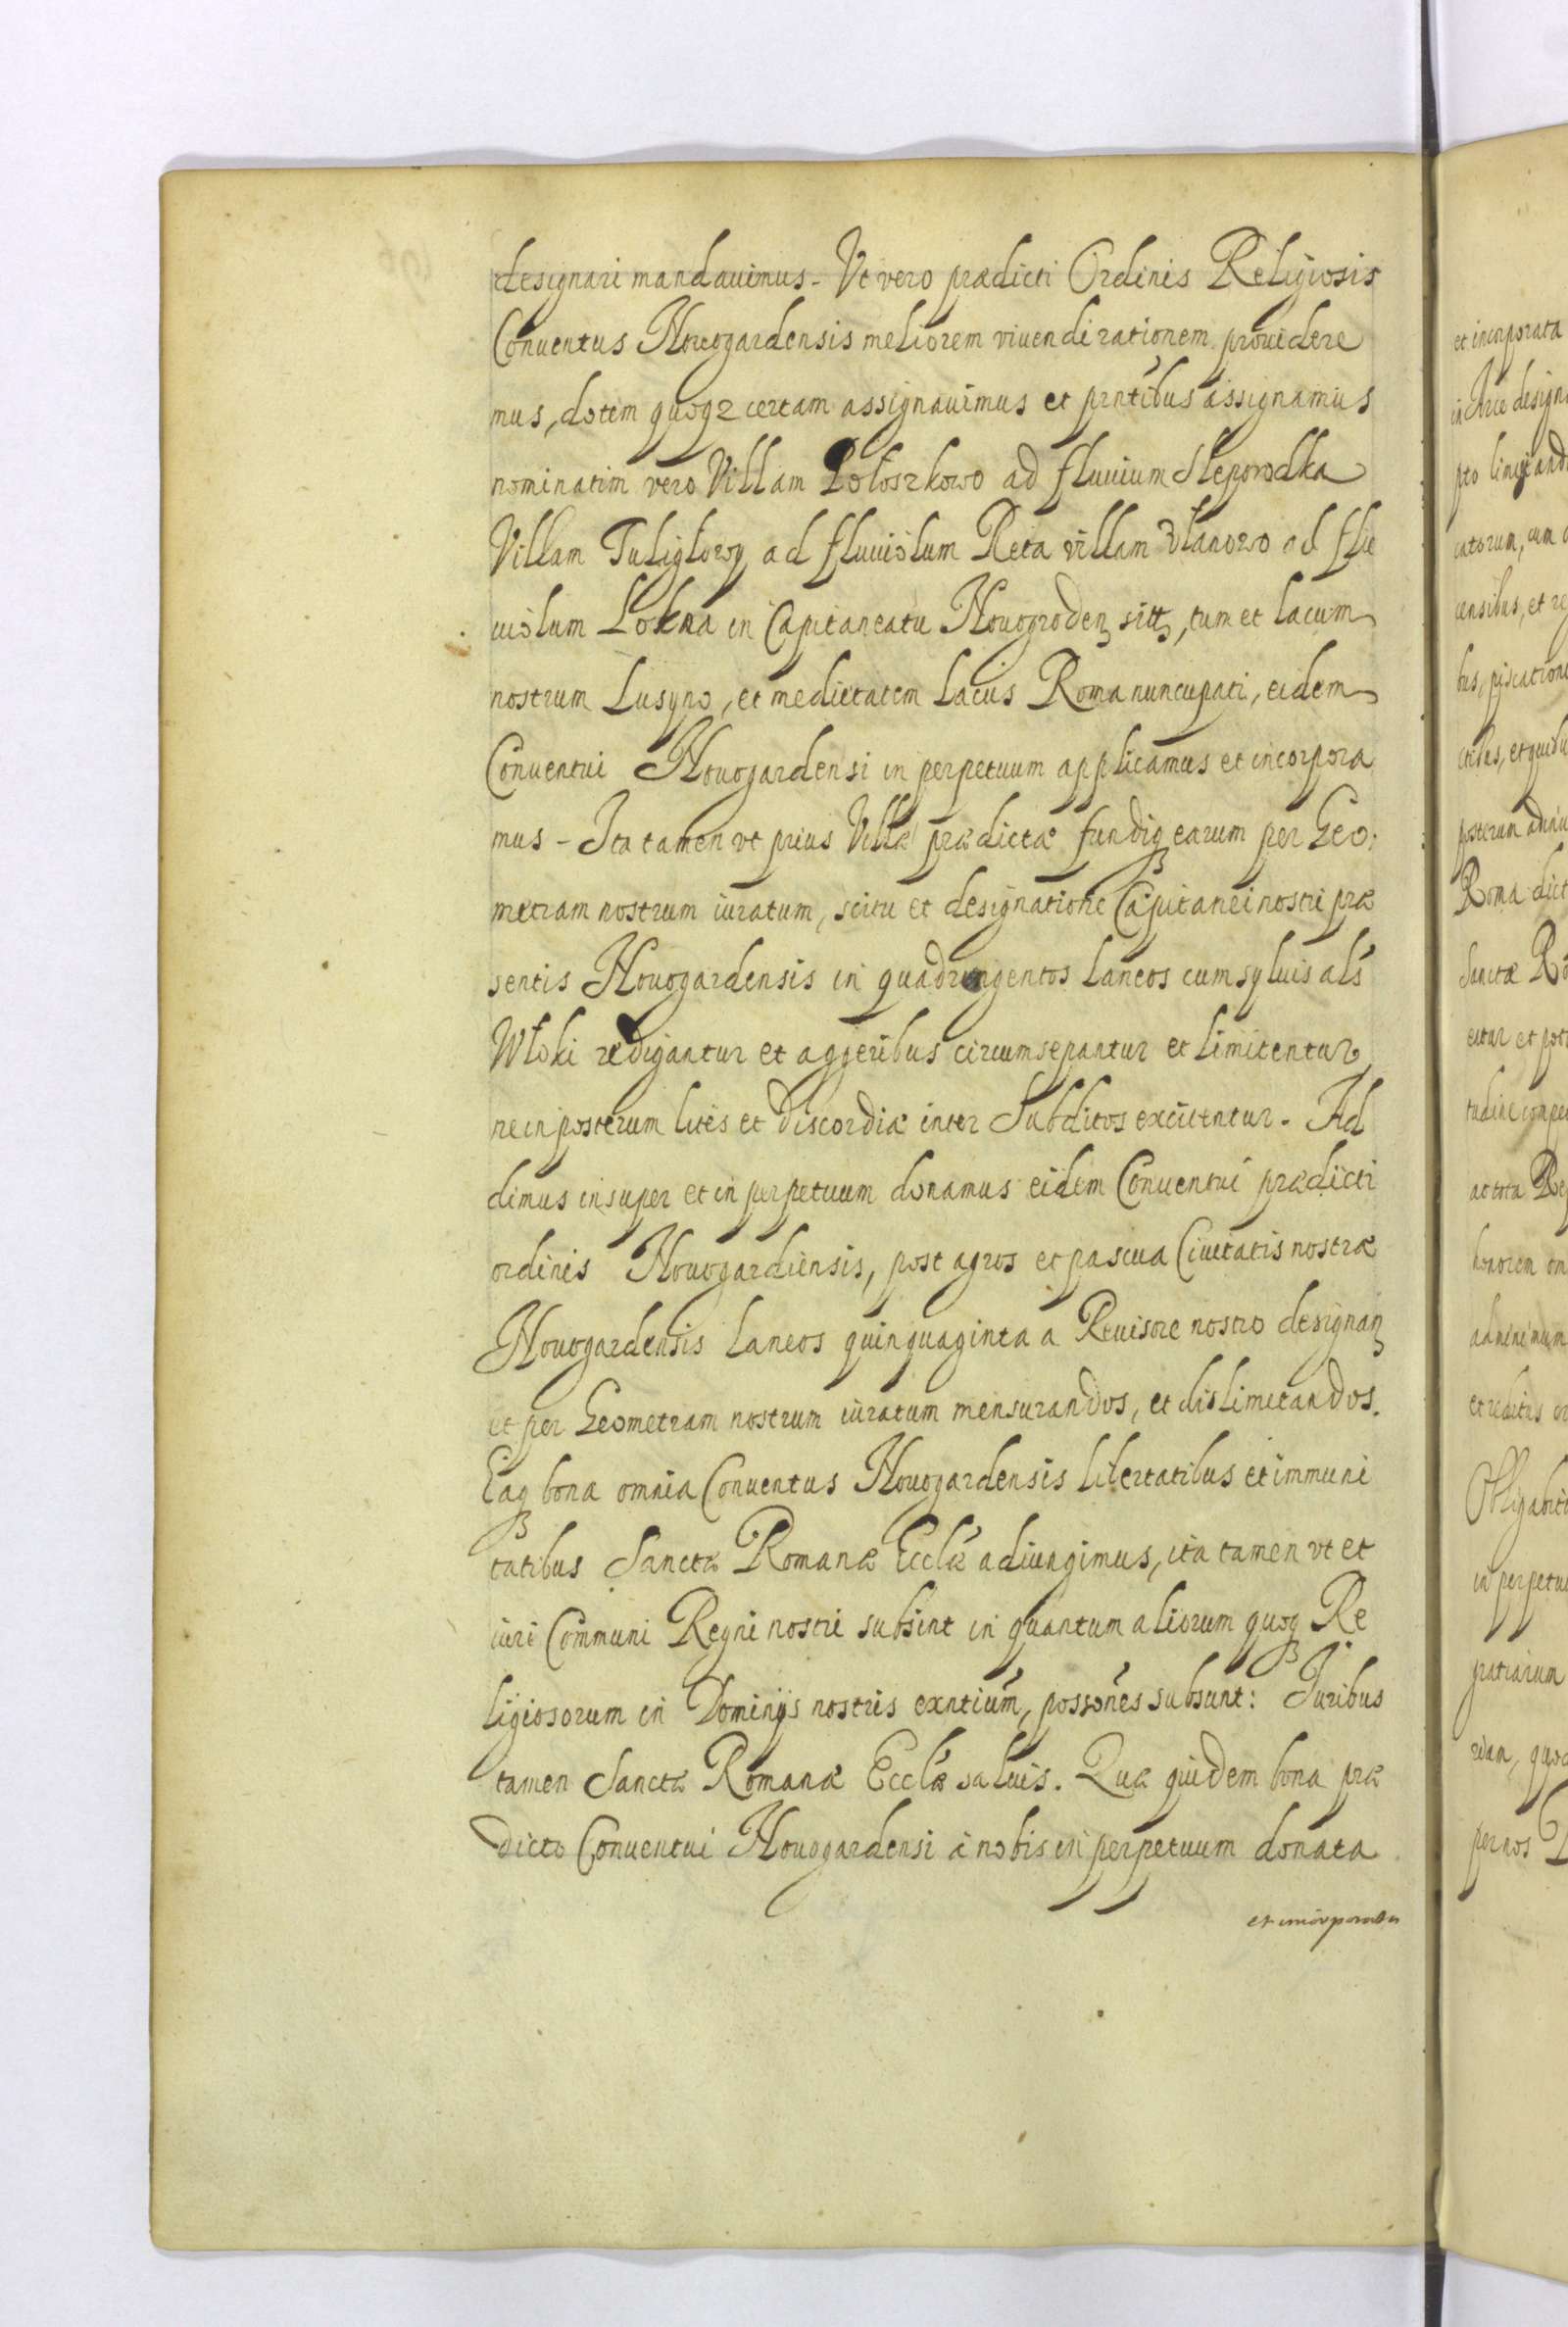 designari mandauimus - Vt vero prædicti Ordinis Religiosis
Conuentus Nouogardensis meliorem viuendi rationem prouidere
mus, dotem quoqz certam assignauimus et prntibus assignamus
nominatim vero Villam Połoszkowo ad fluuium Sleporodka
Villam Tuligłowy ad fluuiolum Reta villam Vlanowo ad flu
uiolum Lokna in Capitaneatu Nouogroden sitt, tum et lacum
nostrum Lusyno, et medietatem lacus Roma nuncupati, eidem
Conuentui Nouogardensi in perpetuum applicamus et incorpora
mus - Ita tamen vt prius Villæ prædictæ fundiq earum per Geo
metram nostrum iuratum, scitu et designatione Capitanei nostri præ
sentis Nouogardensis in quadringentos laneos cum syluis als
Włoki redigantur et aggeribus circumsepantur et limitentur,
ne in posterum lites et discordiæ inter Subditos exciitentur. Ad
dimus insuper et in perpetuum donamus eidem Conuentui prædicti
ordinis Nouogardiensis, post agros et pascua Ciuitatis nostræ
Nouogardensis laneos quinquaginta a Reuisore nostro designan
et per Geometram nostrum iuratum mensurandos, et dislimitandos.
Eaq bona omnia Conuentus Nouogardensis libertatibus et immuni
tatibus Sanctæ Romanæ Ecclæ adiungimus, ita tamen vt et
iuri Communi Regni nostri subsint in quantum aliorum quoq Re
ligiosorum in Dominijs nostris exntium, possones subsunt: Juribus
tamen Sanctæ Romanæ Ecclæ saluis. Quæ quidem bona præ
dicto Conuentui Nouogardensi a nobis in perpetuum donata
et incorporata
et incorporata
in Arce design
censibus, et re
bus, piscatione
Roma dict
Sanctæ Ro
eitur et pot
honorem om
ad minimum
et reditus or
in perpetu
gratiarum
per nos